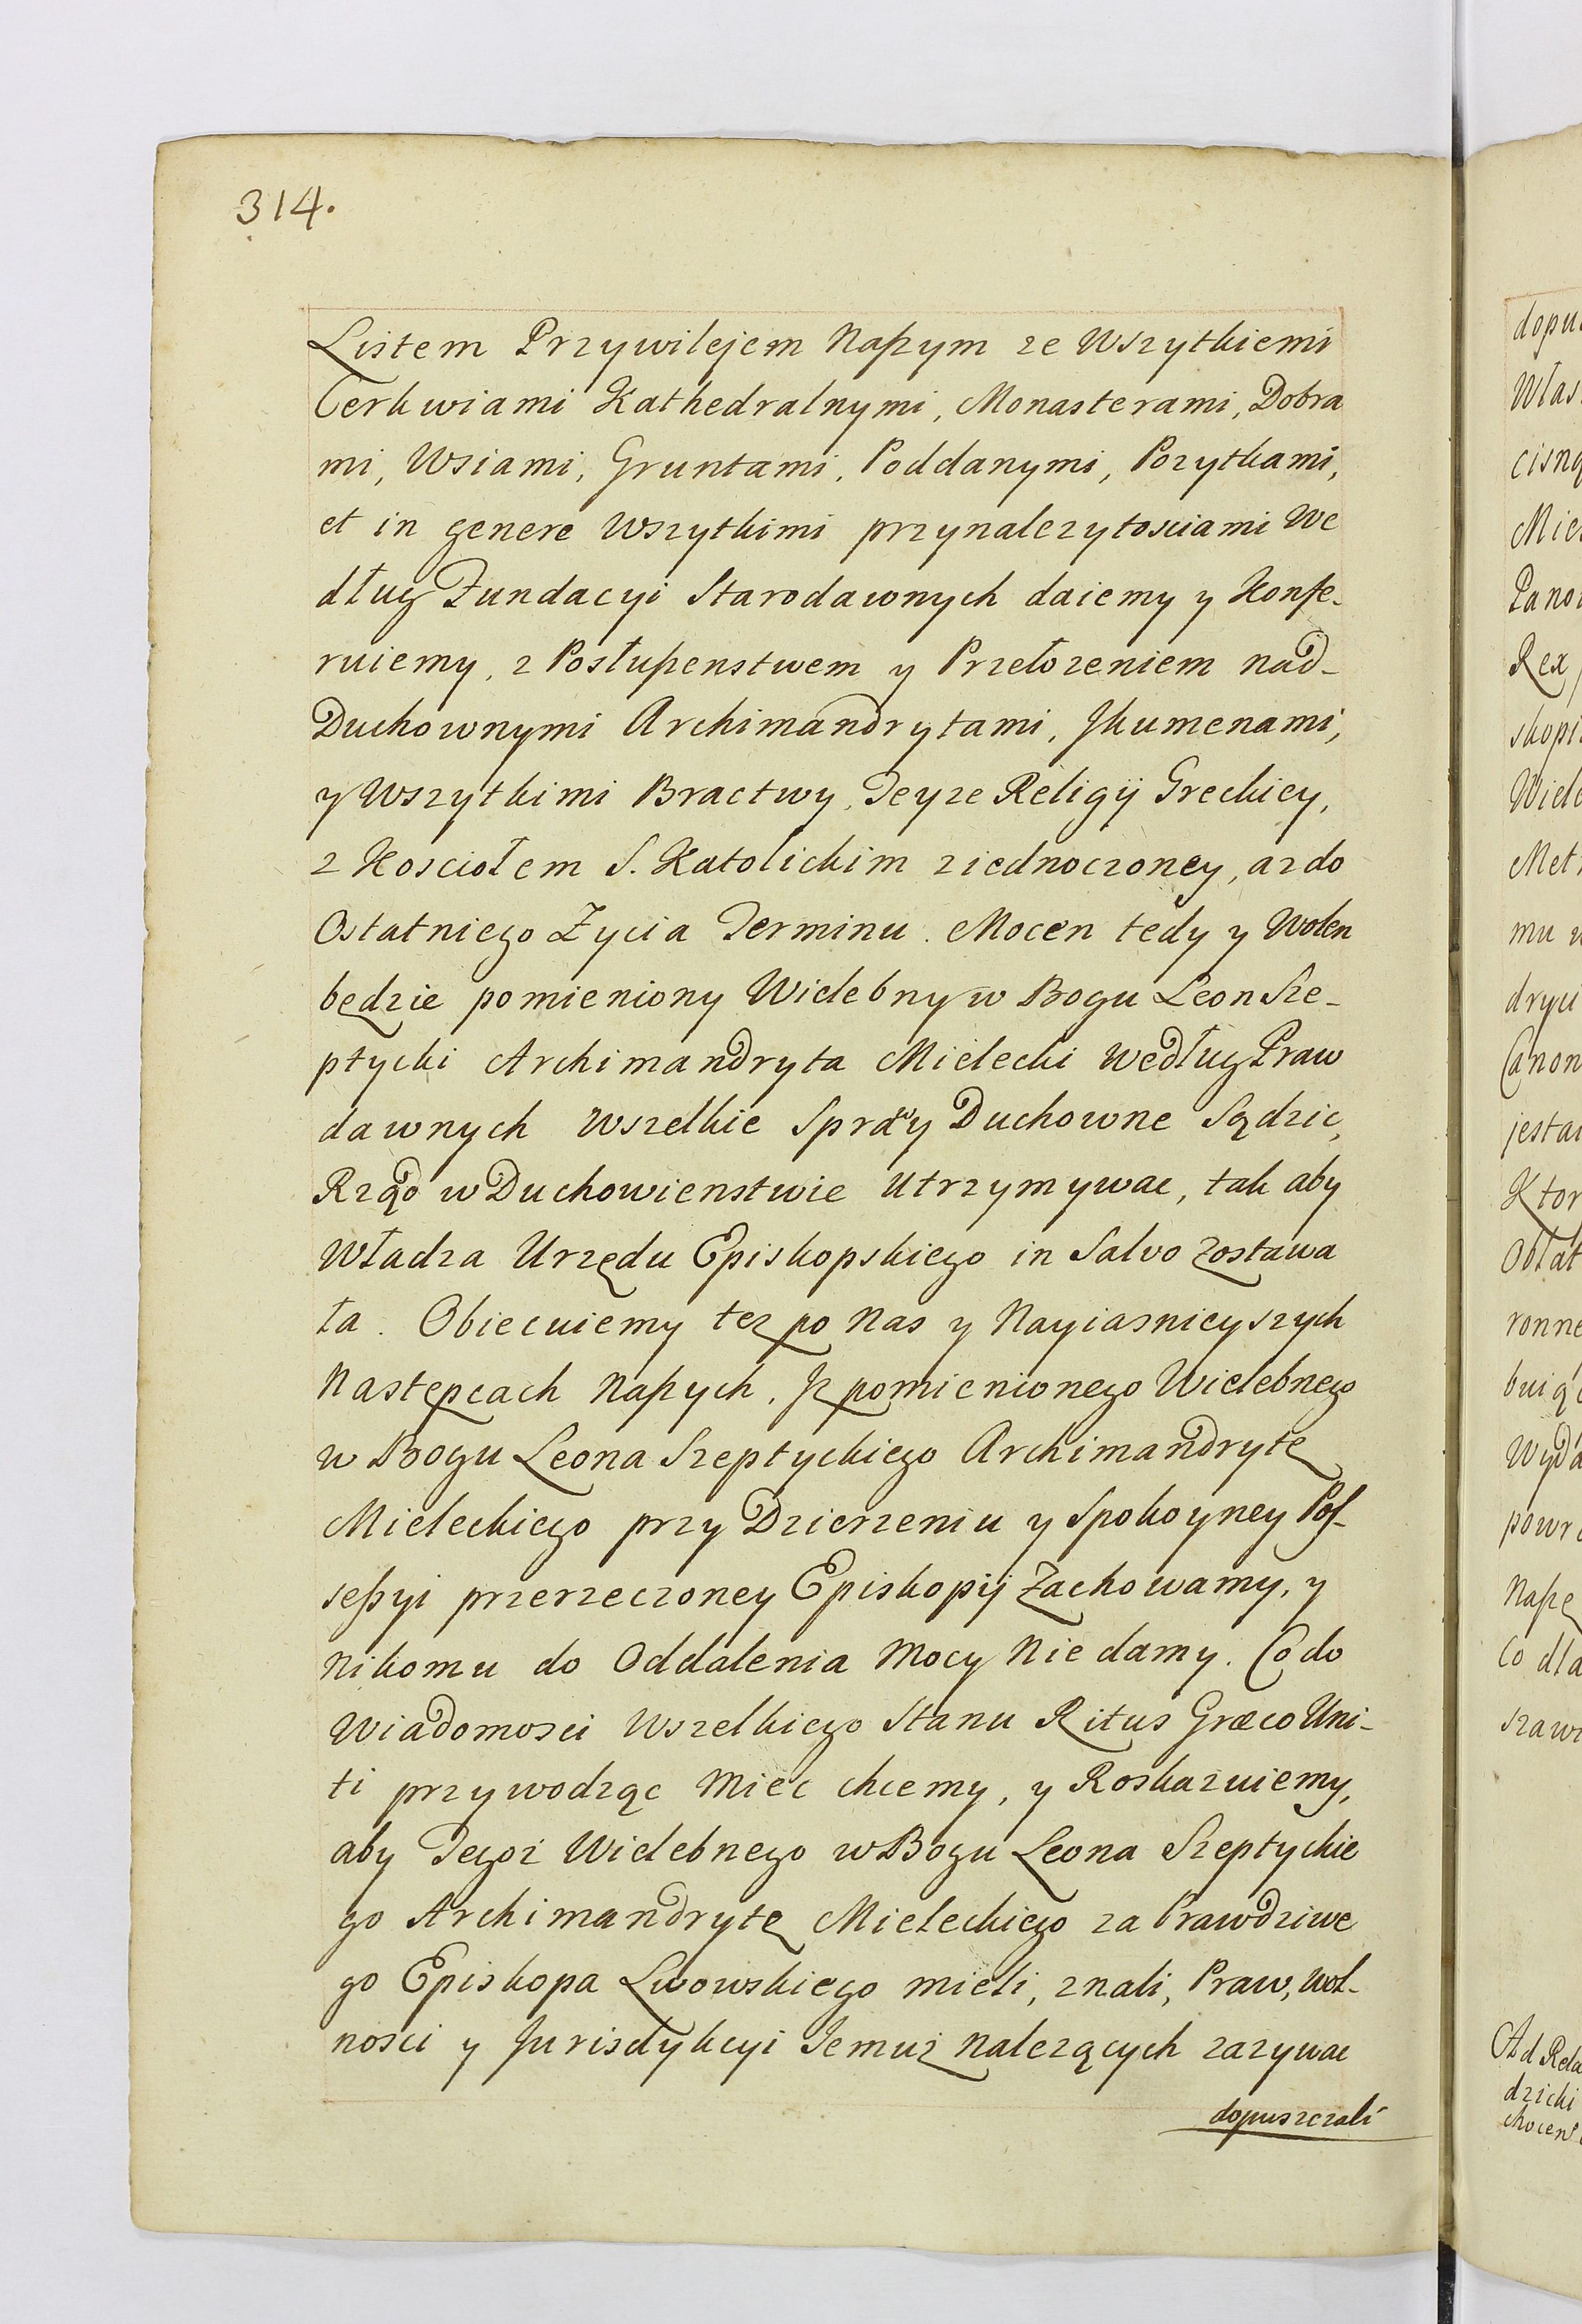 314.
Listem Przywilejem Naszym ze Wszytkiemi
Cerkwiami Kathedralnymi, Monasterami, Dobra
mi, Wsiami, Gruntami, Poddanymi, Pozytkami,
et in genere Wszytkimi przynalezytosciami We
dług Fundacyi Starodawnych daiemy y Konfe-
ruiemy, z Posłuszenstwem y Przełozeniem nad-
Duchownymi Archimandrytami, Jhumenami,
y Wszytkimi Bractwy, Teyze Religij Greckiey,
z Kosciołem S. Katolickim ziednoczoney, az do
Ostatniego Zycia Terminu. Mocen tedy y Wolen
będzie pomieniony Wielebny w Bogu Leon Sze-
ptycki Archimandryta Mielecki według Praw
dawnych Wszelkie Sprawy Duchowne Sądzic,
Rząd w Duchowienstwie Utrzymywac, tak aby
Władza Urzędu Episkopskiego in Salvo zostawa
ła. Obiecuiemy tez po Nas y Nayiasnieyszych
Następcach Naszych, Jz pomienionego Wielebnego
w Bogu Leona Szeptyckiego Archimandrytę
Mieleckiego przy Dzierzeniu y Spokoyney Pos-
sessyi przerzeczoney Episkopij Zachowamy, y
Nikomu do Oddalenia Mocy Nie damy. Co do
Wiadomosci Wszelkiego Stanu Ritus Græco Uni-
ti przywodząc Miec chcemy, y Roskazuiemy,
aby Tegoż Wielebnego w Bogu Leona Szeptyckie
go Archimandrytę Mieleckiego za Prawdziwe
go Episkopa Lwowskiego mieli, znali, Praw, Wol-
nosci y Jurisdykcyi Jemuż Nalezących zazywac
dopuszczali